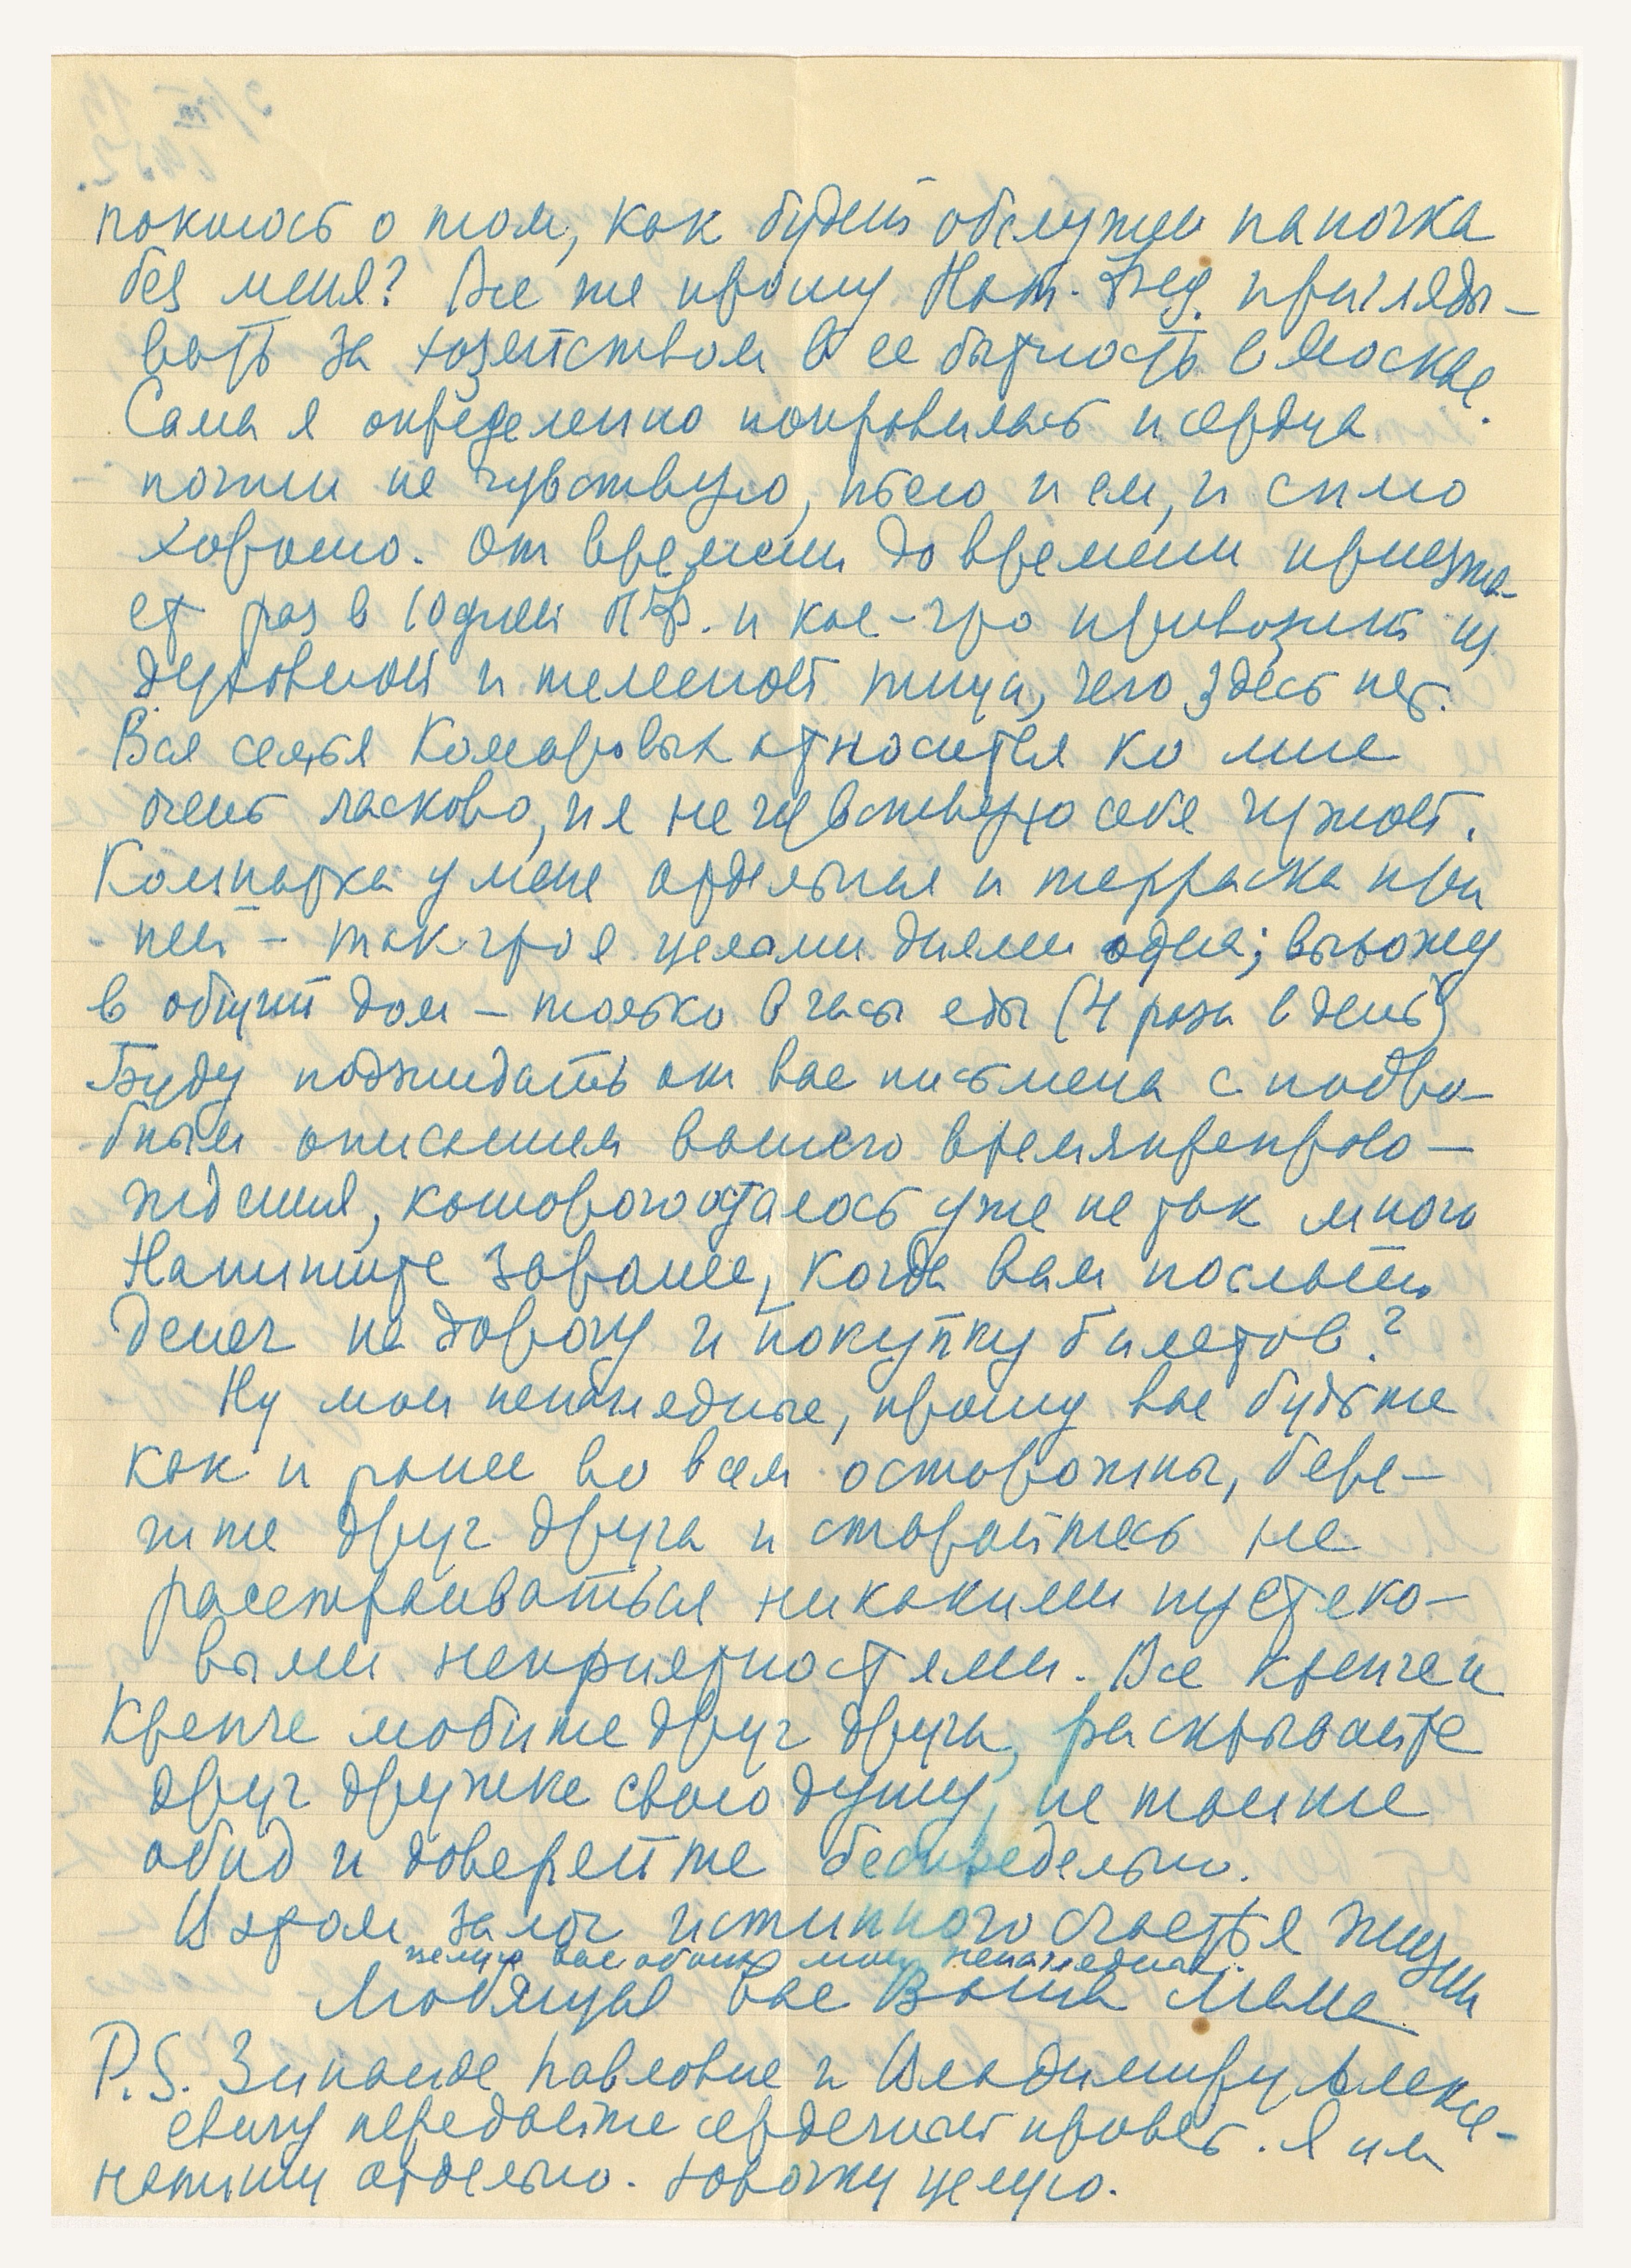 покоюсь о том, как будет обслужен папочка
без меня? Все же прошу Нат. Фед. пригляды-
вать за хозяйством в ее бытность в Москве.
Сама я определенно поправилась и сердца
почти не чувствую, пью и ем, и сплю
хорошо. От времени до времени приезжа-
ет раз в 10 дней П.Ф. и кое-что привозит из
духовной и телесной пищи, чего здесь нет.
Вся семья Комаровых относится ко мне
очень ласково, и я не чувствую себя чужой.
Комнатка у меня отдельная и терраска при
ней – так что я целыми днями одна; выхожу
в общий дом – только в часы еды (4 раза в день)
Буду поджидать от вас письмеца с подро-
бным описанием вашего времяпрепрово-
ждения, которого осталось уже не так много
Напишите заранее, когда вам послать
денег на дорогу и покупку билетов?
Ну мои ненаглядные, прошу вас будьте
как и ранее во всем осторожны, бере-
гите друг друга и старайтесь не
расстраиваться никакими пустяко-
выми неприятностями. Все крепче и
крепче любите друг друга, раскрывайте
друг дружке свою душу, не таите
обид и доверяйте беспредельно.
В этом залог истинного счастья жизни
целую вас обоих мои ненаглядные.
Любящая вас Ваша мама
P.S. Зинаиде Павловне и Владимиру Алексе-
евичу передайте сердечный привет. Я им
напишу отдельно. целую.